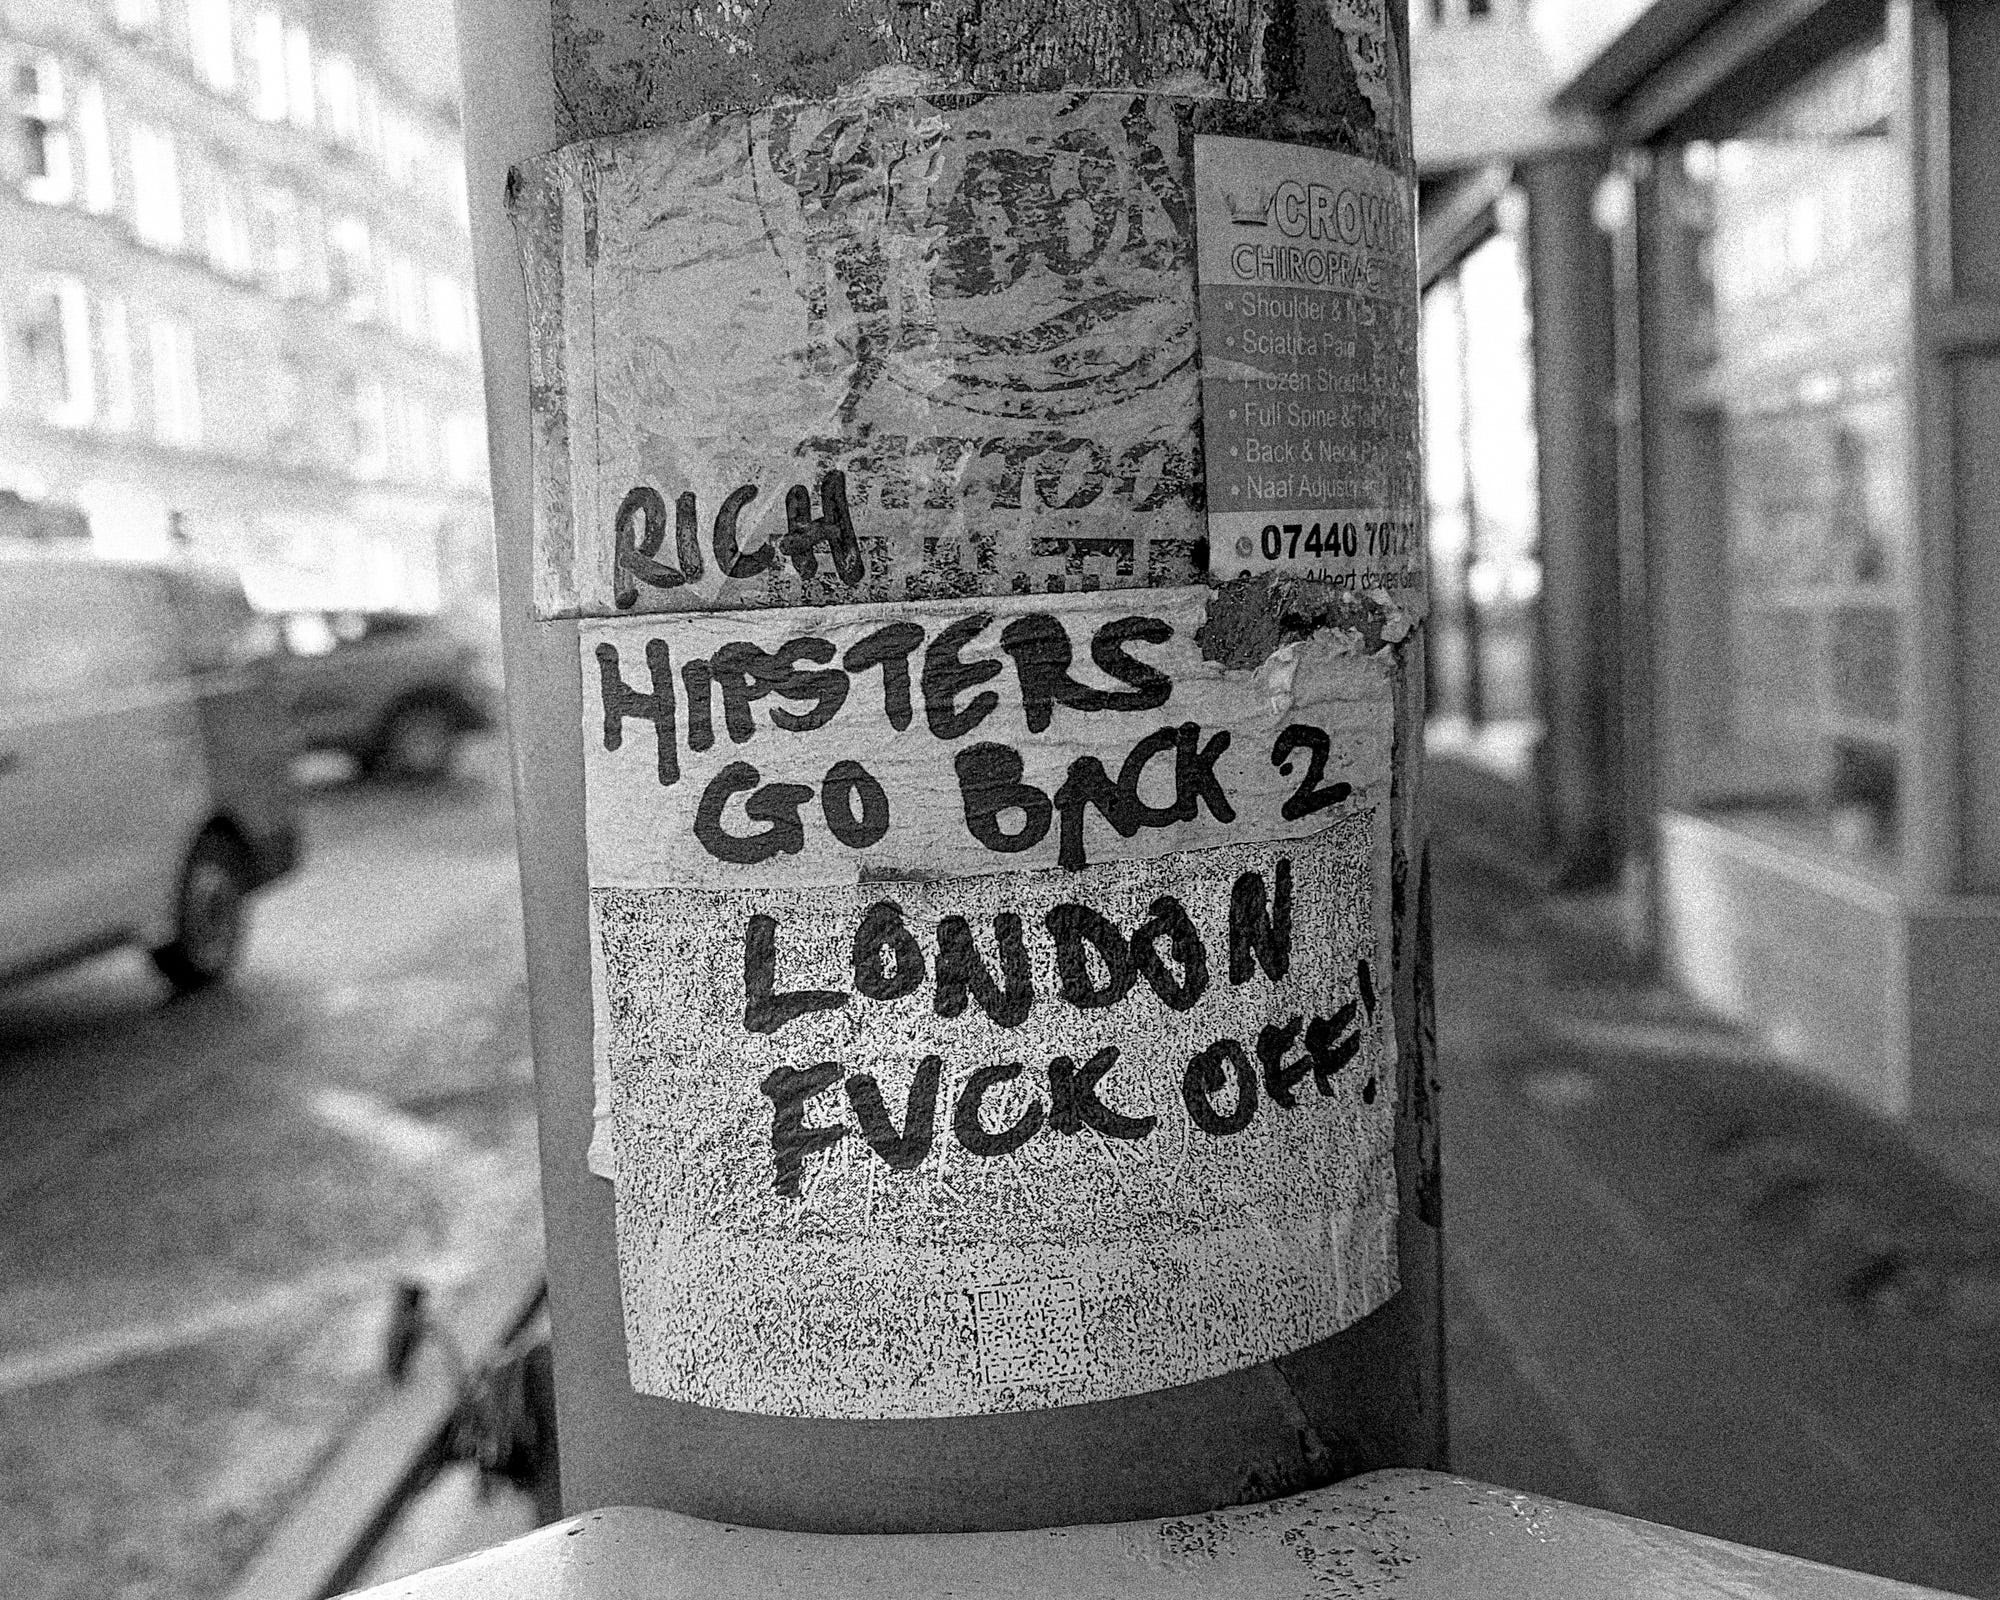 TATTOO
CROWN
CHIROPRAC
• Shoulder & N
• Sciatica Pain
• Frozen Should
• Full Spine &
• Back & Neck Pa
• Naaf Adjust
07440 70
Albert
RICH
HIPSTERS
GO BACK 2
LONDON
FUCK OFF!